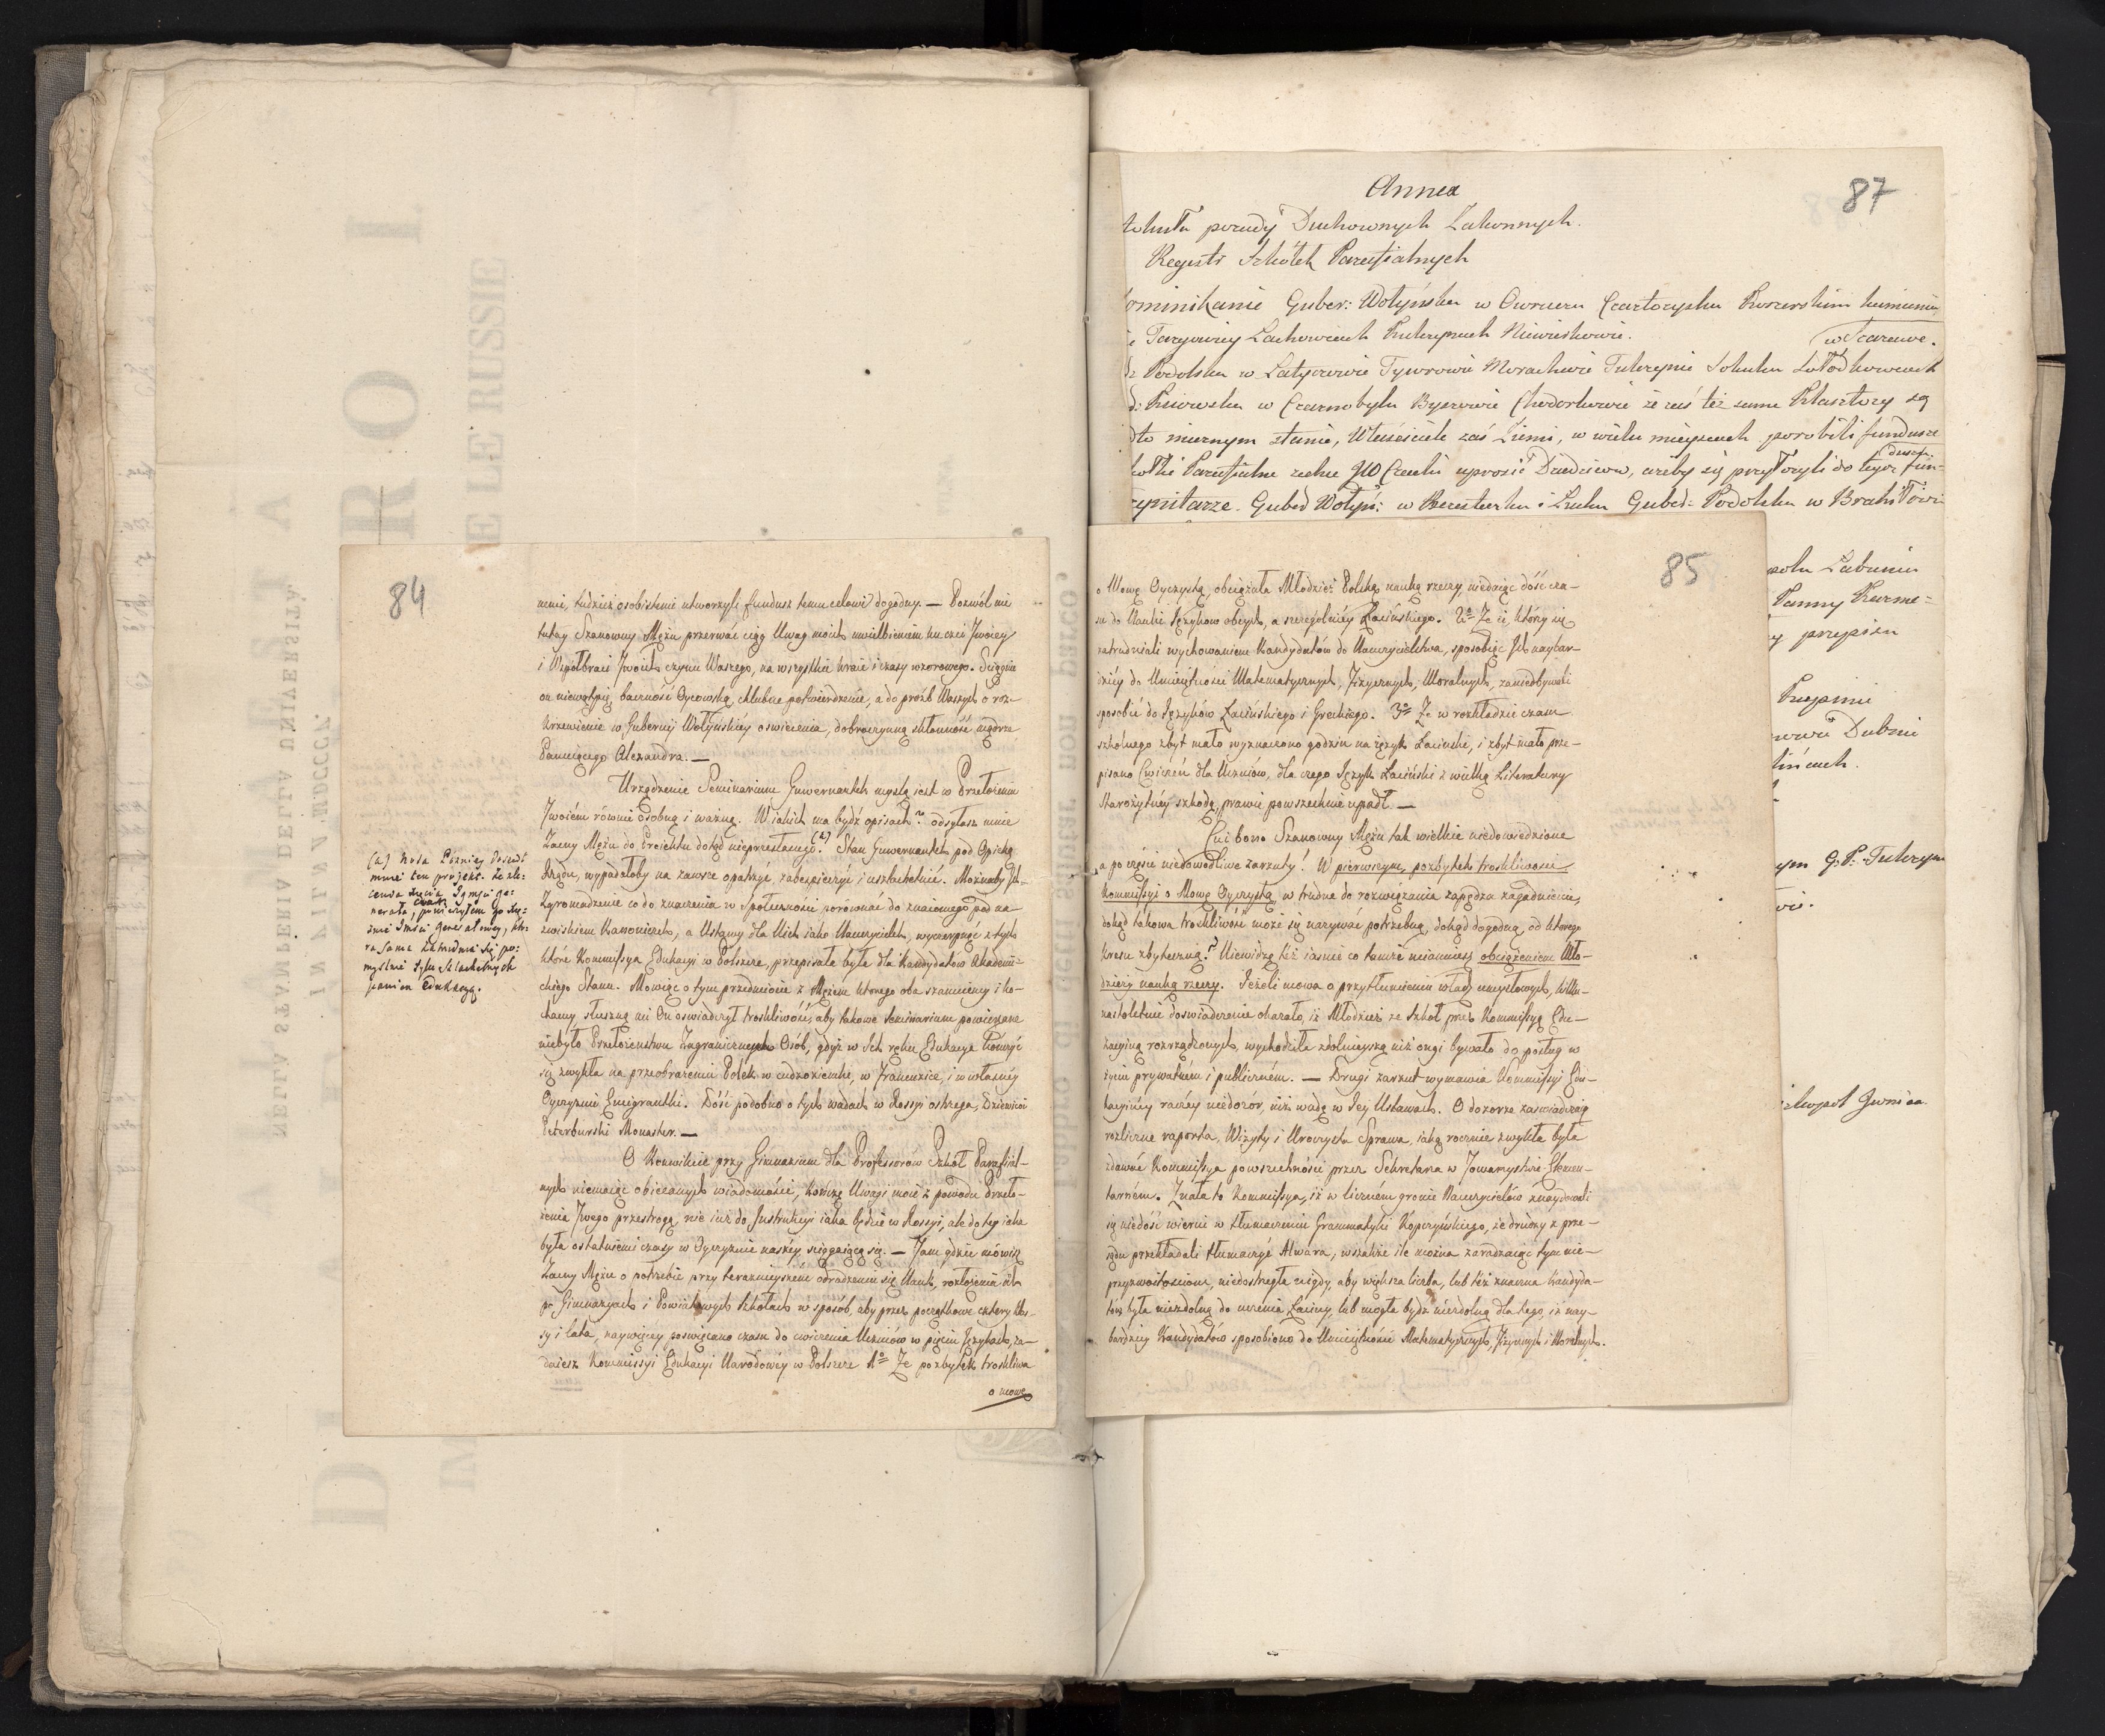 84
nemi, tudzież osobistemi utworzyli fundusz temu celowi dogodny. — Pozwól mi
tutay Szanowny Mężu przerwać ciąg Uwag moich uwielbieniem ku czci Twoiey
i Współbraci Twoich czynu Waszego, na wszystkie kraie i czasy wzorowego. Ściągnie
on niewątpię, baczność Oycowską, chlubne potwierdzenie, a do próśb Waszych o roz-
krzewienie w Gubernij Wołyńskiéy oswiecenia, dobroczynną skłonność mądrze
Panuiącego Alexandra. —
Urządzenie Seminarium Guwernantek myślą iest w Przełożeniu
Twoiém równie osobną i ważną. W iakich ma bydź opisach? odsyłasz mnie
Zacny Mężu do Proiektu dotąd nieprzesłanego (a)! Stan Guwernantek pod Opieką
Rządu, wypadałoby na zawsze opatrzyć, zabezpieczyć i uszlachetnić. Możnaby Jch
Zgromadzenie co do znaczenia w Społeczności porównać do znaiomego pod na-
zwiskiem Kanoniczek, a Ustawy dla Nich iako Nauczycielek, wyczerpnąć z tych
które Kommissya Edukacyi w Polszcze, przepisała była dla Kandydatów Akademi-
ckiego Stanu. Mowiąc o tym przedmiocie z Mężem którego oba szanuiemy i ko-
chamy słuszną mi On oswiadczył troskliwość, aby takowe Seminarium powierzane
niebyło Przełożeństwu Zagranicznych Osób, gdyż w Jch ręku Edukacya kończyć
się zwykła na przeobrażeniu Polek w cudzoziemki, w Francuzice, i w własnéy
Oyczyznie Emigrantki. Dość podobno o tych wadach w Rossyi ostrzega, Dziewiczi
Peterburski Monaster. —
O Konwikcie przy Gimnazium dla Professorów Szkół Parafial-
nych niemaiąc obiecanych wiadomości, kończę Uwagi moie z powodu Przeło-
żenia Twego przestrogą, nie iuż do Jnstrukcyi iaka będzie w Rossyi, ale do tey iaka
była ostatniemi czasy w Oyczyznie naszéy sciągaiącą się. — Tam gdzie mówisz
Zacny Mężu o potrzebie przy terazniejszém odradzaniu się Nauk, rozłożenia ich
po Gimnazyach i Powiatowych Szkołach w sposób, aby przez początkowe cztery kla-
ssy i lata, naywięcey poswięcano czasu do cwiczenia Uczniów w pięciu Językach, za-
daiesz Kommissyi Edukacyi Narodowéy w Polszcze 1º Ze pozbytek troskliwa
o mowę
(a) Nota Pózniey doszedł
mnie ten projekt. Ze zle-
cenia Xięcia Jgmści ge-
nerała, czytałem go Xię-
żnie Jmści Generałowey, któ-
ra sama zatrudnia się po-
myślnie tylu szlachetnych
panien Edukacyą.
Annex
87
porady Duchownych Zakonnych.
Regestr Szkółek Parafialnych
ominikanie Guber: Wołyńska w Owruczu Czartorysku
Targowicy Lachowcach
w
Podolska w Latyczowie Tywrowie Morachwie Tulczynie Sokulcu
Kiiowska w Czarnobylu Byszowie Chodorkowie że zaś też same Klasztory są
miernym stanie, Właściciele zaś Ziemi, w wielu mieyscach porobili fundusze
Parafialne zechce JW Czacki uprosić Dziedziców, ażeby się przyłożyli do tegoż fun-
duszu
rynitarze. Guber Wołyń: w Beresteczku i Łucku Guber: Podolska w Brahiłowie
85
o Mowę Oyczystą, obciążała Młodzież Polską nauką rzeczy, niedaiąc dość cza-
su do Nauki Języków obcych, a szczególniéy Łacińskiego. 2º Ze ci, którzy się
zatrudniali wychowaniem Kandydatów do Nauczycielstwa, sposobiąc Jch naybar-
dziéy do Umieiętności Matematycznych, Fizycznych, Moralnych, zaniedbywali
sposobić do Języków Łacińskiego i Greckiego. 3º Ze w rozkładzie czasu
szkolnego zbyt mało wyznaczono godzin na język Łaciński, i zbyt mało prze-
pisano Cwiczeń dla Uczniów, dla czego Język Łaciński z wielką Literatury
Starożytnéy szkodą, prawie powszechnie upadł. —
Cui bono Szanowny Mężu tak wielkie niedowiedzione
a po części niedowodliwe zarzuty! W pierwszym, pozbytek troskliwości
Kommissyi o Mowę Oyczystą, w trudne do rozwiązania zapędza zagadnienie,
dokąd takowa troskliwość może się nazywać potrzebną, dokąd dogodną, od którego
kresu zbyteczną? Niewidzę też iasnie co tamże mianuiesz obciążeniem Mło-
dzieży nauką rzeczy. Jeżeli mowa o przytłumieniu władz umysłowych, kilku-
nastoletnie doswiadczenie okazało, iż Młodzież ze Szkół przez Kommissyą Edu-
kacyiną rozrządzonych, wychodziła zdolnieyszą niż ongi bywało do posług w
życiu prywatném i publiczném. — Drugi zarzut wymawia Kommissyi Edu-
kacyinéy raczéy niedozór, niż wadę w Jey Ustawach. O dozorze zaswiadczaią
rozliczne raporta, Wizyty i Uroczysta Sprawa, iaką rocznie zwykła była
zdawać Kommissya powszechności przez Sekretarza w Towarzystwie Elemen-
tarném. Znała to Kommissya, iż w liczném gronie Nauczycielów znaydowali
się niedość wierni w tłumaczeniu Grammatyki Kopczyńskiego, że drudzy z prze-
sądu przekładali tłumaczyć Alwara, wszakże ile można zaradzaiąc tym nie-
przyzwoitościom, niedostrzegła nigdy, aby większa liczba, lub też znaczna Kandyda-
tów była niezdolną do uczenia Łaciny, lub mogła bydź niezdolną dla tego, iż nay-
bardziey Kandydatów sposobiono do Umieiętności Matematycznych, Fizycznych i Moralnych.
Labuniu
Panny Karme=
przepisu
Dubnie
ym G. P. Tulczyn